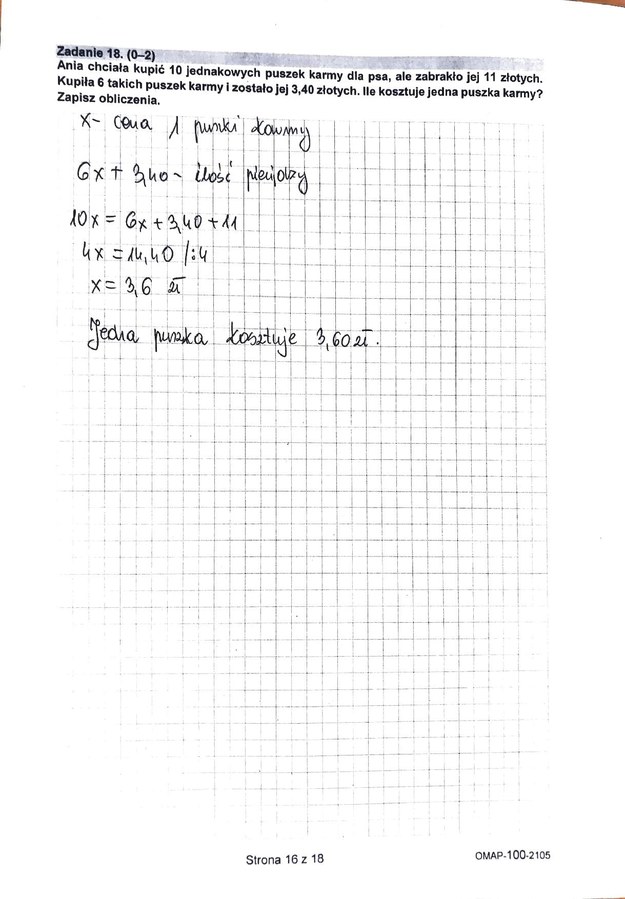 Zadanie 18. (0–2)
Ania chciała kupić 10 jednakowych puszek karmy dla psa, ale zabrakło jej 11 złotych.
Kupiła 6 takich puszek karmy i zostało jej 3,40 złotych. Ile kosztuje jedna puszka karmy?
Zapisz obliczenia.
x- cena 1 puszki karmy
6x + 3,40 - ilość pieniędzy
10x = 6x + 3,40 + 11
4x = 14,40 /:4
x = 3,6 zł
Jedna puszka kosztuje 3,60 zł.
Strona 16 z 18
OMAP-100-2105